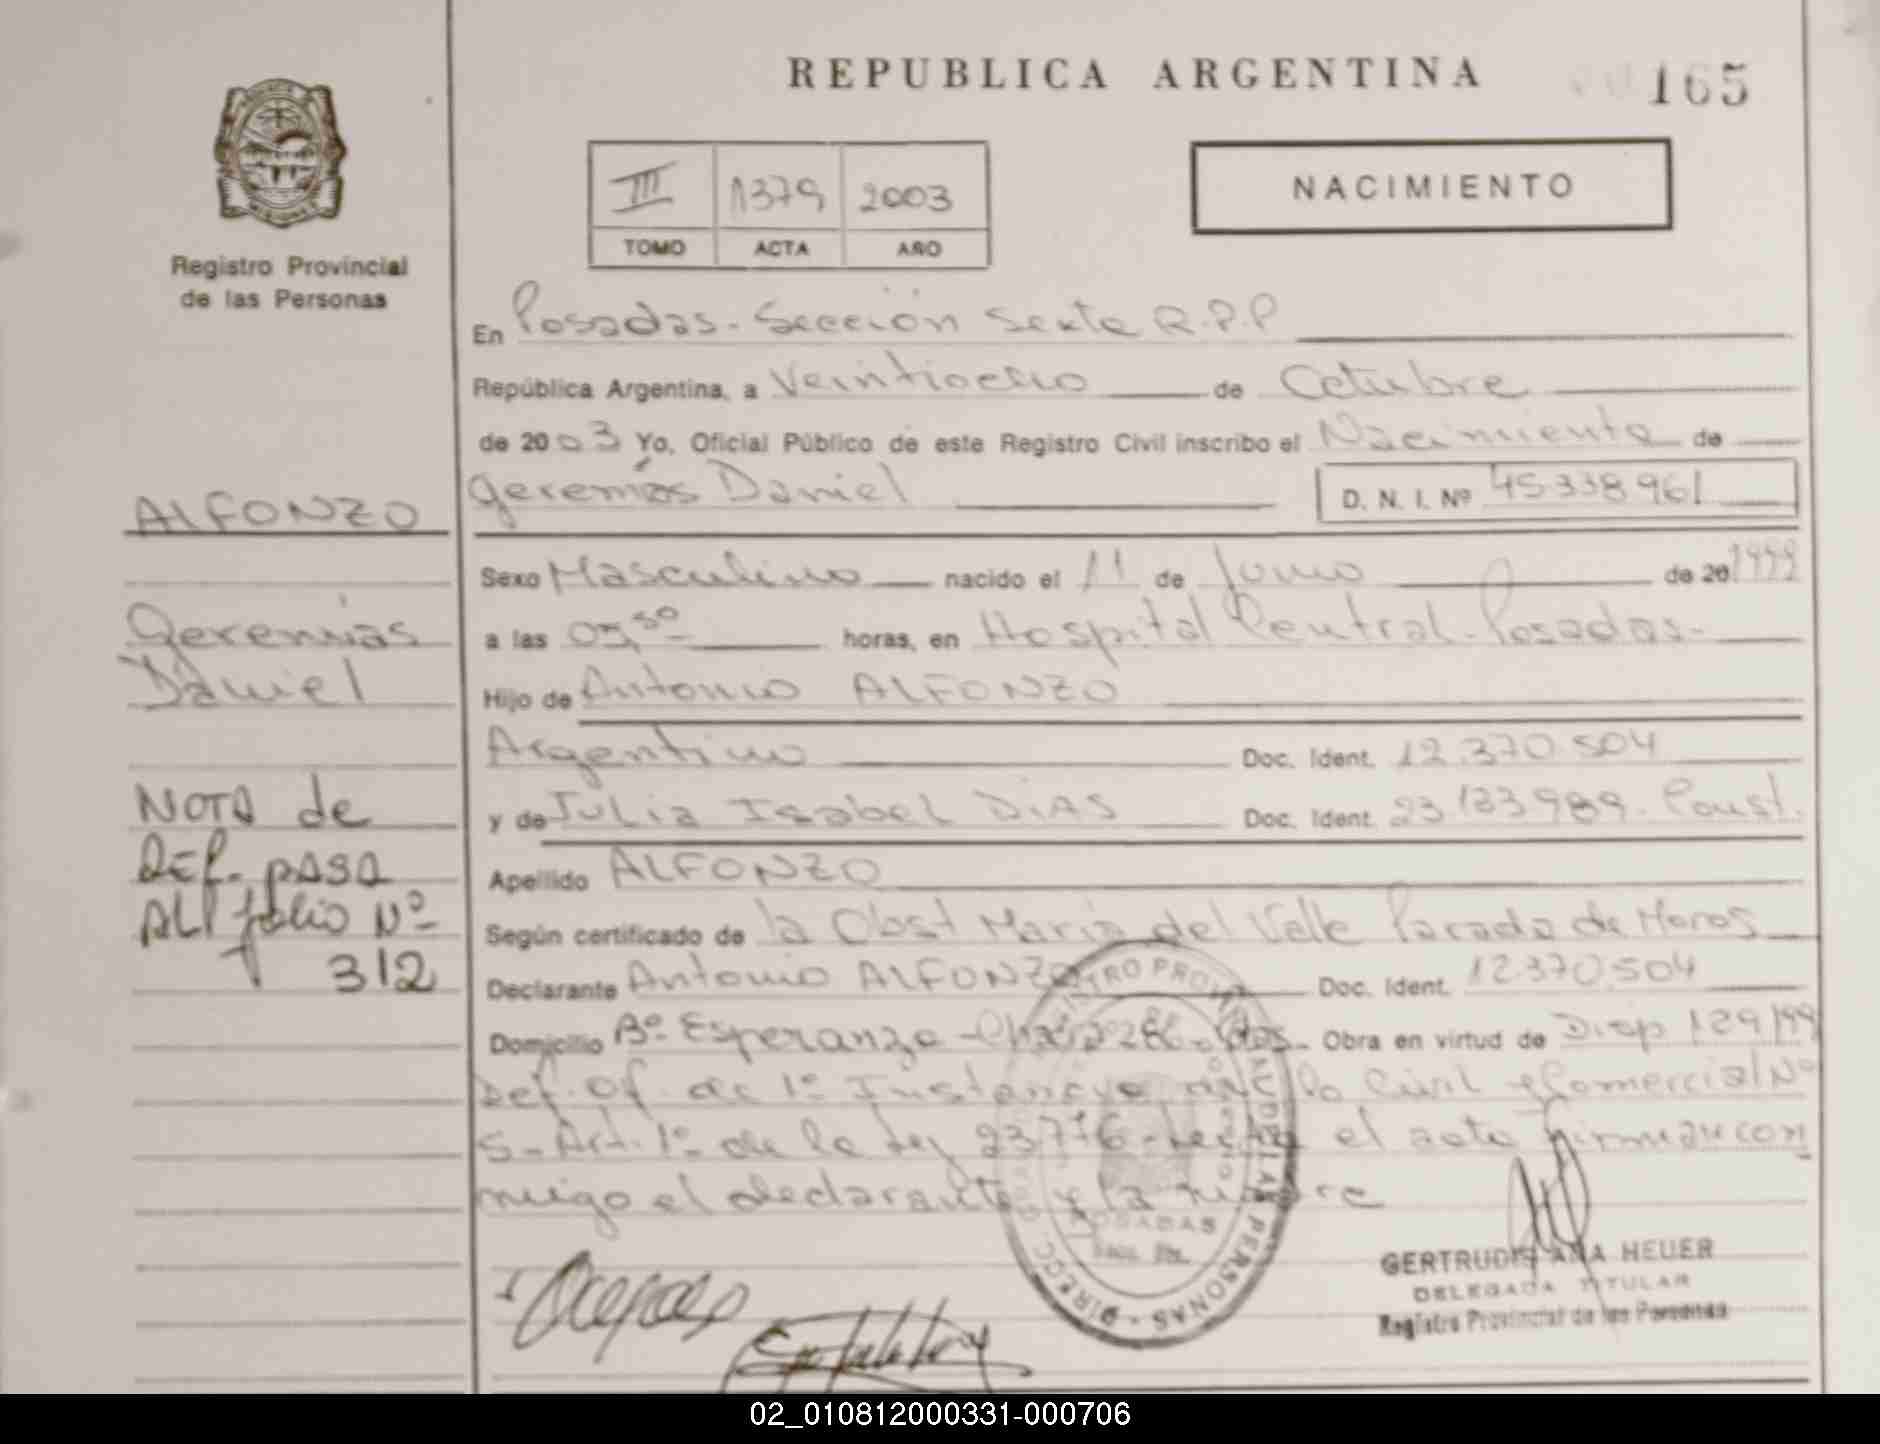 REPUBLICA ARGENTINA
165
III 1379 2003
TOMO ACTA AÑO
NACIMIENTO
Registro Provincial
de las Personas
En Posadas - Sección Sexta R.P.P
República Argentina, a Veintiocho de Octubre
de 2003 Yo, Oficial Público de este Registro Civil inscribo el Nacimiento de
Geremías Daniel D. N. I. Nº 45338961
Sexo Masculino nacido el 11 de Junio de 20 1999
a las 05,50 horas, en Hospital Central - Posadas -
Hijo de Antonio ALFONZO
Argentino Doc. Ident. 12.370.504
y de Julia Isabel DIAS Doc. Ident. 23.133.989 -
Apellido ALFONZO
Según certificado de la Obst María del Valle Parada de Moros
Declarante Antonio ALFONZO Doc. Ident. 12.370.504
Domicilio Bº Esperanza - Obra en virtud de Disp 129/99
Def. Of. de 1º Instancia en lo Civil y Comercial Nº
5 - Art. 1º de la ley 23776 - el acta firman con
migo el declarante y la madre
ALFONZO
Geremías
Daniel
NOTA de
REF. PASA
AL folio Nº
312
REGISTRO PROVINCIAL DE LAS PERSONAS - DIRECC.
POSADAS
GERTRUDIS ANA HEUER
DELEGADA TITULAR
Registro Provincial de las Personas
02_010812000331-000706